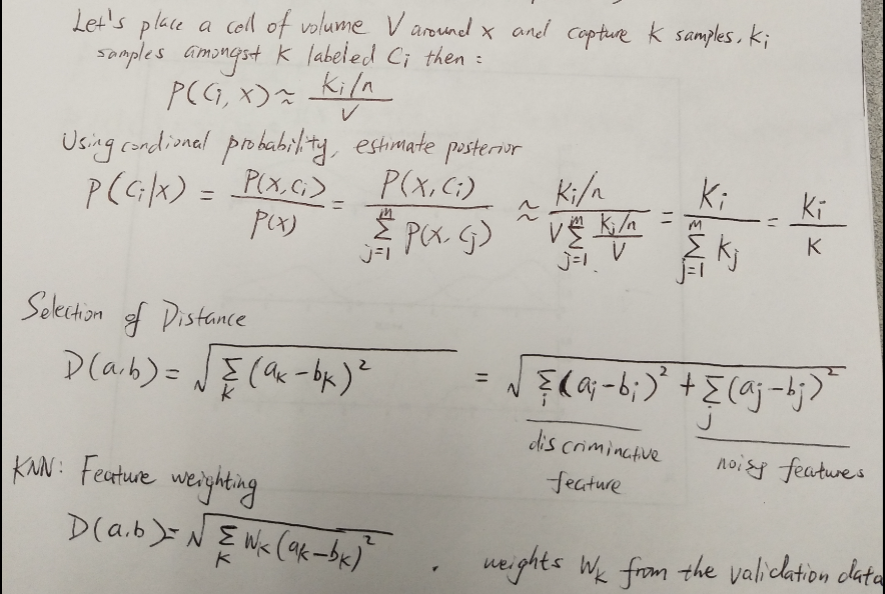 Let's place a cell of volume V around x and capture k samples, ki
samples amongst k labeled Ci then :
P(Ci, x) ≈ (ki/n) / V
Using condional probability, estimate posterior
P(Ci|x) = P(x,Ci) / P(x) = P(x,Ci) / ∑_{j=1}^{m} P(x,Cj) ≈ (ki/n) / (V ∑_{j=1}^{m} (kj/n)/V) = ki / ∑_{j=1}^{m} kj = ki / k
Selection of Distance
D(a,b) = √(∑_k (ak-bk)²) = √(∑_i (ai-bi)² + ∑_j (aj-bj)²)
discriminative feature
noisy features
KNN: Feature weighting
D(a,b) = √(∑_k Wk (ak-bk)²) . weights Wk from the validation data